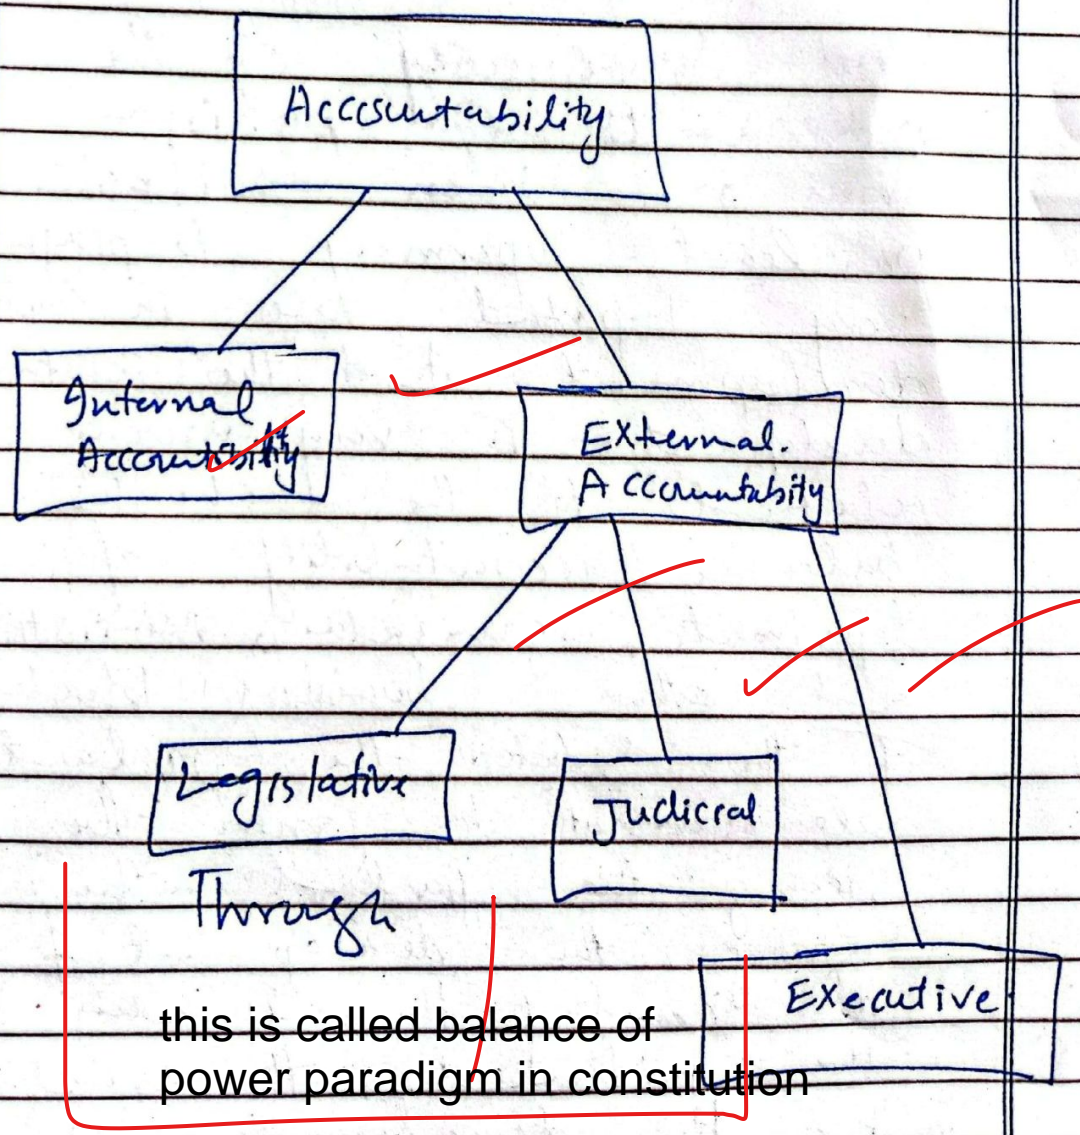 Accountability
Internal
Accountability
External.
Accountabity
Legislative
Judicial
Through
Executive
this is called balance of
power paradigm in constitution